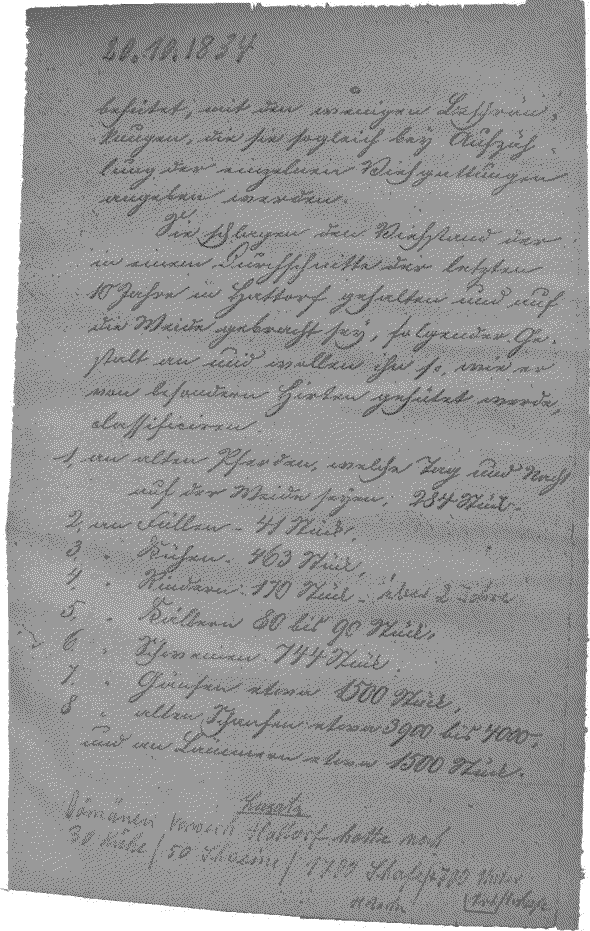 20.10.1834
behütet, mit den wenigen Beschrän-
kungen, die sie sogleich bey Aufzäh-
lung der einzelnen Viehgattungen
angeben werden.
Sie schlagen den Viehstand der
in einem Durchschnitte der letzten
10 Jahre in Hattorf gehalten und auf
die Weide gebracht sey, folgender Ge-
stalt an und wollen ihn so, wie er
von besondern Hirten gehütet werde,
classificiren.
1, an alten Pferden, welche Tag und Nacht
auf der Weide seyen, 234 Stück.
2, an Füllen - 41 Stück,
3, " Kühen - 463 Stück,
4, " Rindern - 170 Stück - über 2 Jahre
5, " Kälbern 80 bis 90 Stück,
6 " Schweinen 744 Stück,
7, " Gänsen etwa 1500 Stück,
8 " alten Schaafen etwa 3900 bis 4000,
und an Lämmern etwa 1500 Stück.
Zusatz
Domänen Vorwerk Hattorf hatte noch
30 Kühe / 50 Schweine /